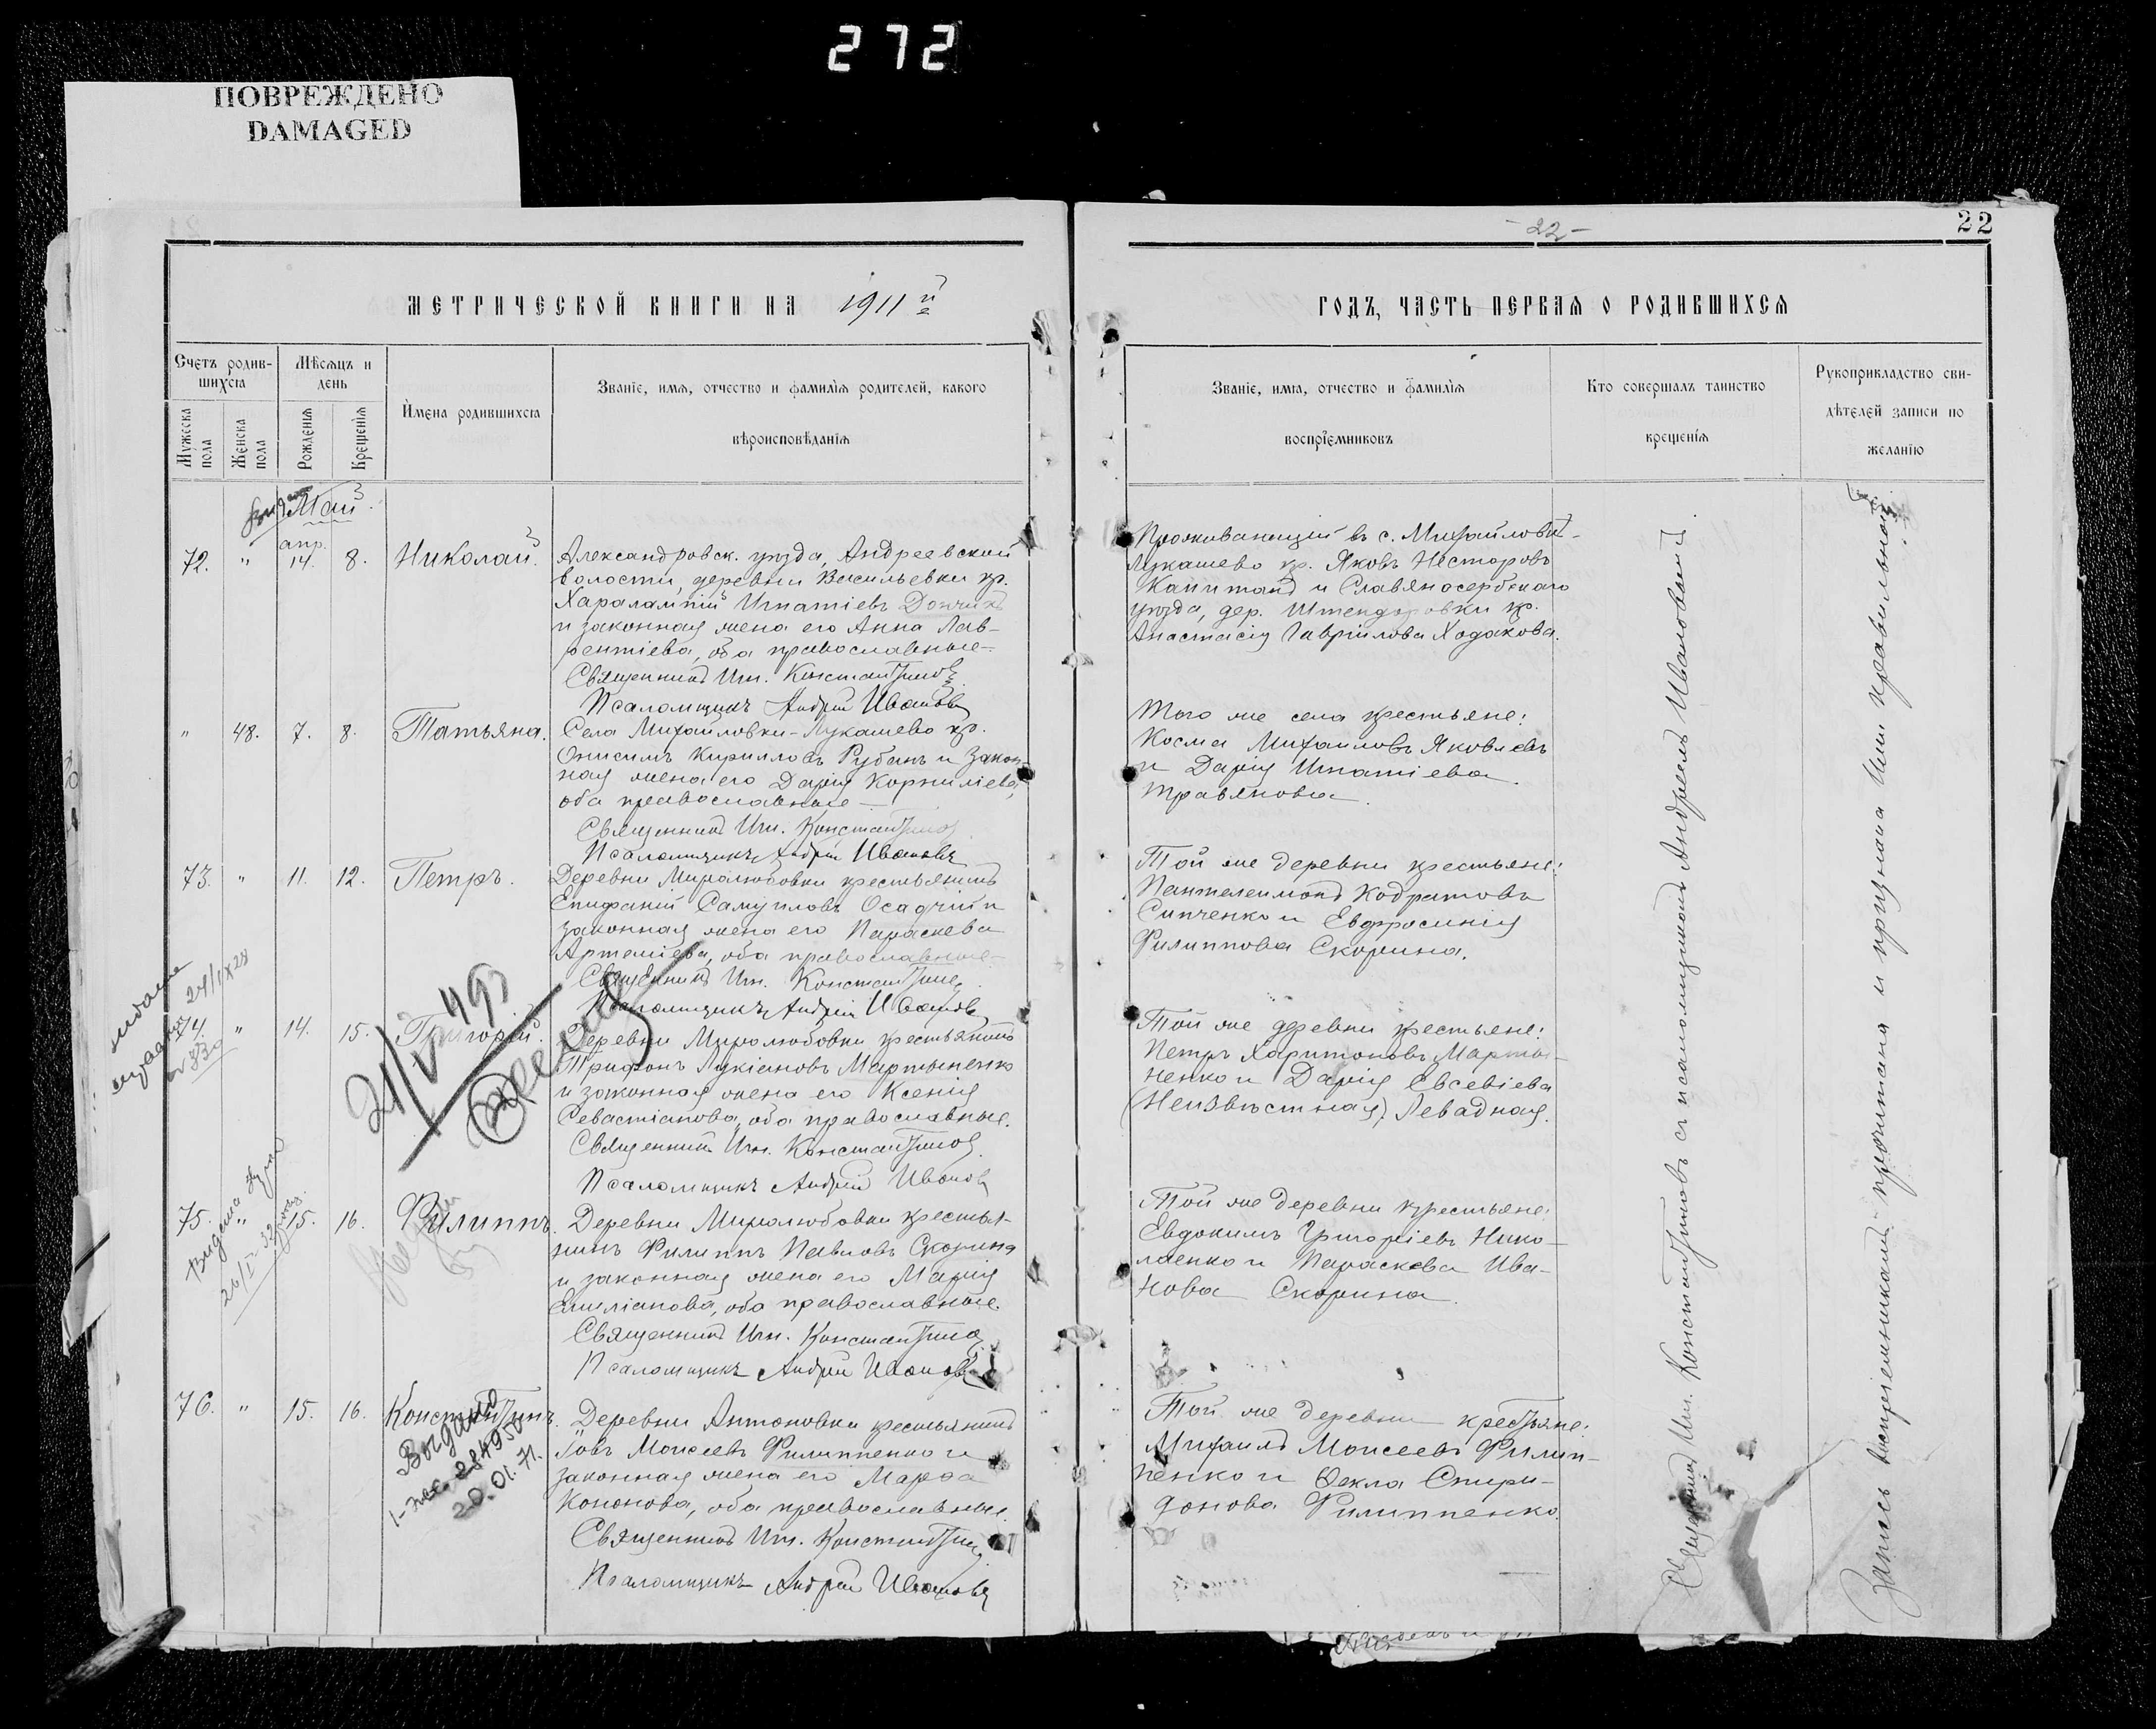 272
ПОВРЕЖДЕНО
DAMAGED
22
-22-
МЕТРИЧЕСКОЙ КНИГИ НА 1911 й
ГОДЪ, ЧАСТЬ ПЕРВАЯ О РОДИВШИХСЯ
Счетъ родив-
шихся
Мужеска пола
Женска пола
Мѣсяцъ и
день
Рожденія
Крещенія
Имена родившихся
Званіе, имя, отчество и фамилія родителей, какого
вѣроисповѣданія
Званіе, имя, отчество и фамилія
воспріемниковъ
Кто совершалъ таинство
крещенія
Рукоприкладство сви-
дѣтелей записи по
желанію
Май
72. " апр. 14. 8. Николай.
Александровск. уѣзда, Андреевской
волости, деревни Васильевки кр.
Харалампій Игнатіевъ Дончикъ
и законная жена его Анна Лав-
рентіева, оба православные.
Священникъ Игн. Константиновъ
Псаломщикъ Андрей Ивановъ
Проживающій въ с. Михайловкѣ-
Лукашево кр. Яковъ Несторовъ
Капитанъ и Славяносербскаго
уѣзда, дер. Штендоровки кр.
Анастасія Гавріилова Ходакова.
" 48. 7. 8. Татьяна.
Села Михайловки-Лукашево кр.
Онисимъ Кирилловъ Рубанъ и закон-
ная жена его Дарія Корниліева,
оба православные
Священникъ Игн. Константиновъ
Псаломщикъ Андрей Ивановъ
Того же села крестьяне:
Косма Михаиловъ Яковлевъ
и Дарія Игнатіева
Травянова.
73. " 11. 12. Петръ.
Деревни Миролюбовки крестьянинъ
Епифаній Самуиловъ Осадчій и
законная жена его Параскева
Артеміева, оба православные
Священникъ Игн. Константиновъ
Псаломщикъ Андрей Ивановъ
Той же деревни крестьяне:
Пантелеимонъ Кодратовъ
Сипченко и Евфросинія
Филиппова Скорина.
74. " 14. 15. Григорій.
Деревни Миролюбовки крестьянинъ
Трифонъ Лукіановъ Мартыненко
и законная жена его Ксенія
Севастіанова, оба православные.
Священникъ Игн. Константиновъ
Псаломщикъ Андрей Ивановъ
Той же деревни крестьяне:
Петръ Харитоновъ Марты-
ненко и Дарія Евсевіева
(Неизвѣстная) Левадная.
75. " 15. 16. Филиппъ.
Деревни Миролюбовки крестья-
нинъ Филиппъ Павловъ Скорина
и законная жена его Марія
Емиліанова, оба православные.
Священникъ Игн. Константиновъ
Псаломщикъ Андрей Ивановъ
Той же деревни крестьяне:
Евдокимъ Григоріевъ Нико-
лаенко и Параскева Ива-
нова Скорина.
76. " 15. 16. Константинъ.
Выдано
284950
20.01.71.
Деревни Антоновки крестьянинъ
Іовъ Моисеевъ Филиппенко и
законная жена его Марфа
Кононова, оба православные.
Священникъ Игн. Константиновъ
Псаломщикъ Андрей Ивановъ
Той же деревни крестьяне:
Михаилъ Моисеевъ Филип-
пенко и Ѳекла Спири-
донова Филиппенко.
Священникъ Игн. Константиновъ съ псаломщикомъ Андреемъ Ивановымъ
Запись воспріемниками прочитана и признана ими правильной